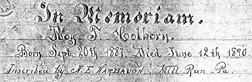 In Memoriam.
Roy T. Colborn.
Born Sept. 20th 1881, Died June 12th 1890.
Inscribed by A. E. Harbaugh, Mill Run Pa.